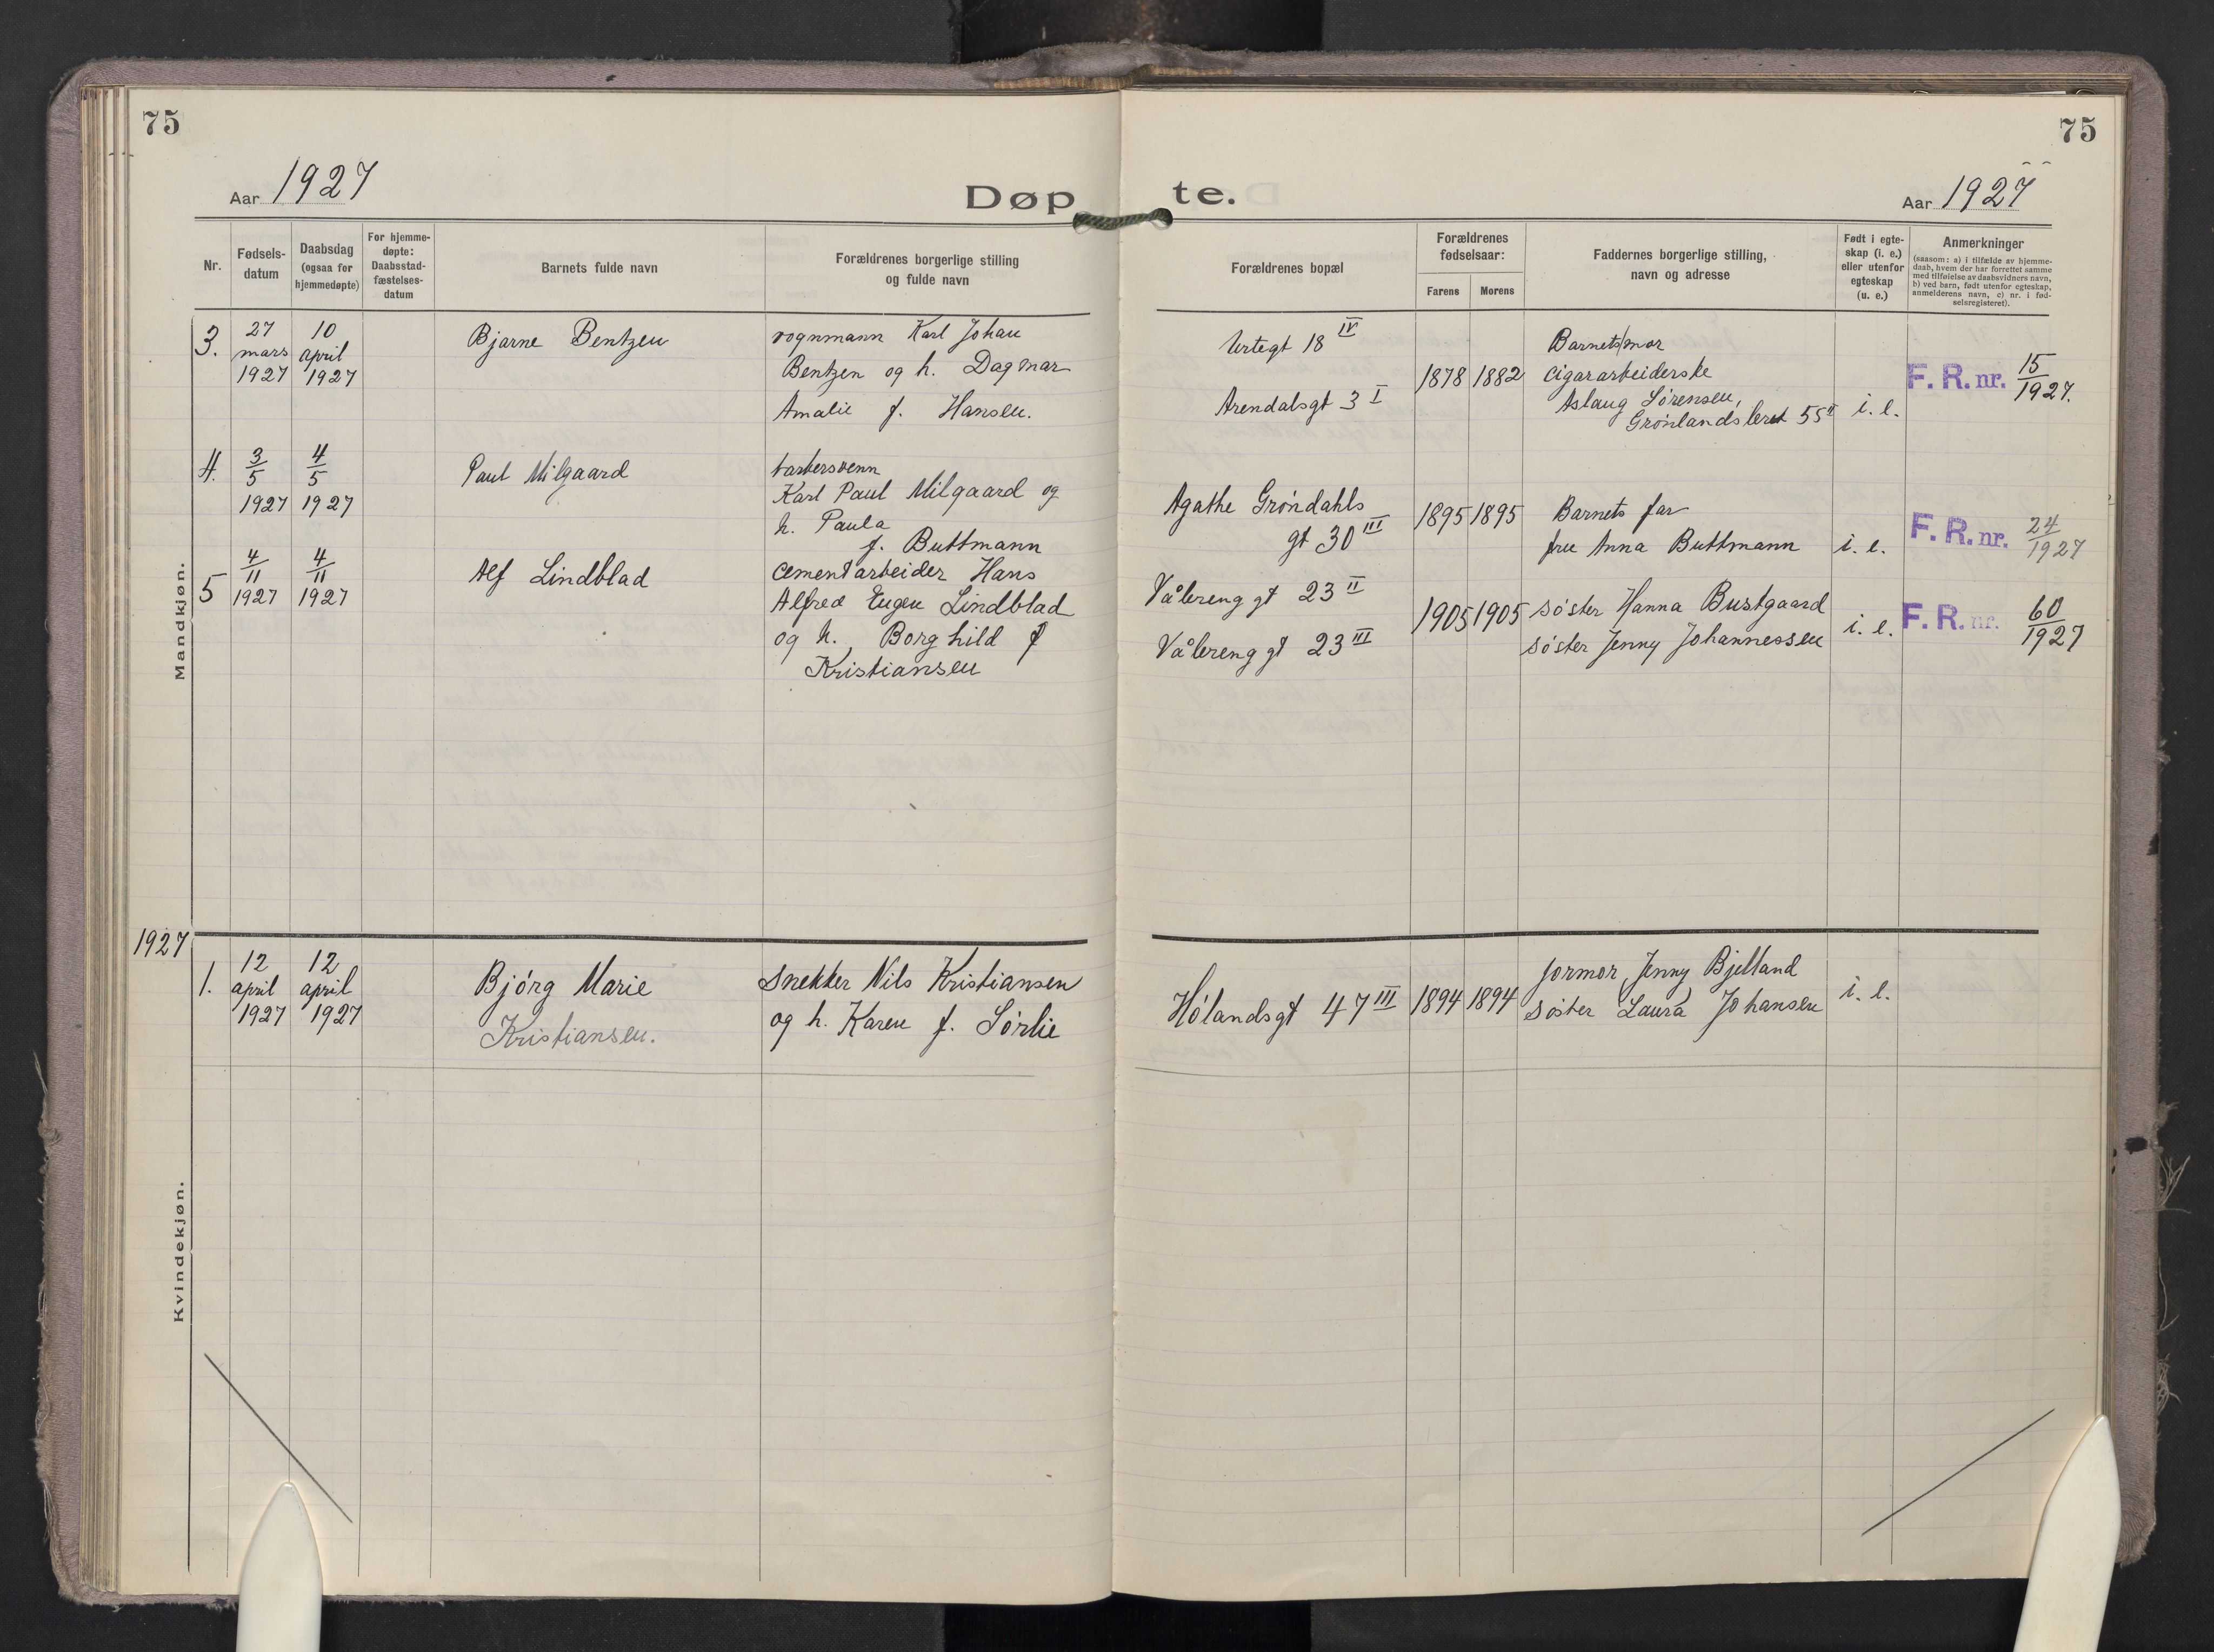 75
75
Aar 1927
Døp te.
Aar 1927
Nr.
Fødsels-
datum
Daabsdag
(ogsaa for
hjemmedøpte)
For hjemme-
døpte:
Daabsstad-
fæstelses-
datum
Barnets fulde navn
Forældrenes borgerlige stilling
og fulde navn
Forældrenes bopæl
Forældrenes
fødselsaar:
Farens
Morens
Faddernes borgerlige stilling,
navn og adresse
Født i egte-
skap (i. e.)
eller utenfor
egteskap
(u. e.)
Anmerkninger
(saasom: a) i tilfælde av hjemme-
daab, hvem der har forrettet samme
med tilføielse av daabsvidners navn,
b) ved barn, født utenfor egteskap,
anmelderens navn, c) nr. i fød-
selsregisteret).
Mandkjøn.
3.
27
mars
1927
10
april
1927
Bjarne Bentzen
vognmann Karl Johan
Bentzen og h. Dagmar
Amalie f. Hansen.
Urtegt 18 IV
Arendalsgt 3 I
1878
1882
Barnets mor
cigararbeiderske
Aslaug Sørensen,
Grønlandsleret 55 II
i. e.
F. R. nr. 15/1927.
4.
3/5
1927
4/5
1927
Paul Milgaard
barbersvenn
Karl Paul Milgaard og
h. Paula
f. Buttmann
Agathe Grøndahls
gt 30 III
1895
1895
Barnets far
fru Anna Buttmann
i. e.
F. R. nr. 24/1927
5
4/11
1927
4/11
1927
Alf Lindblad
cementarbeider Hans
Alfred Eugen Lindblad
og h. Borghild f
Kristiansen
Vålerenggt 23 II
Vålerenggt 23 III
1905
1905
søster Hanna Bustgaard
søster Jenny Johannessen
i. e.
F. R. nr. 60/1927
1927
Kvindekjøn.
1.
12
april
1927
12
april
1927
Bjørg Marie
Kristiansen.
Snekker Nils Kristiansen
og h. Karen f. Sørlie
Hølandsgt 47 III
1894
1894
jormor Jenny Bjelland
søster Laura Johansen
i. e.